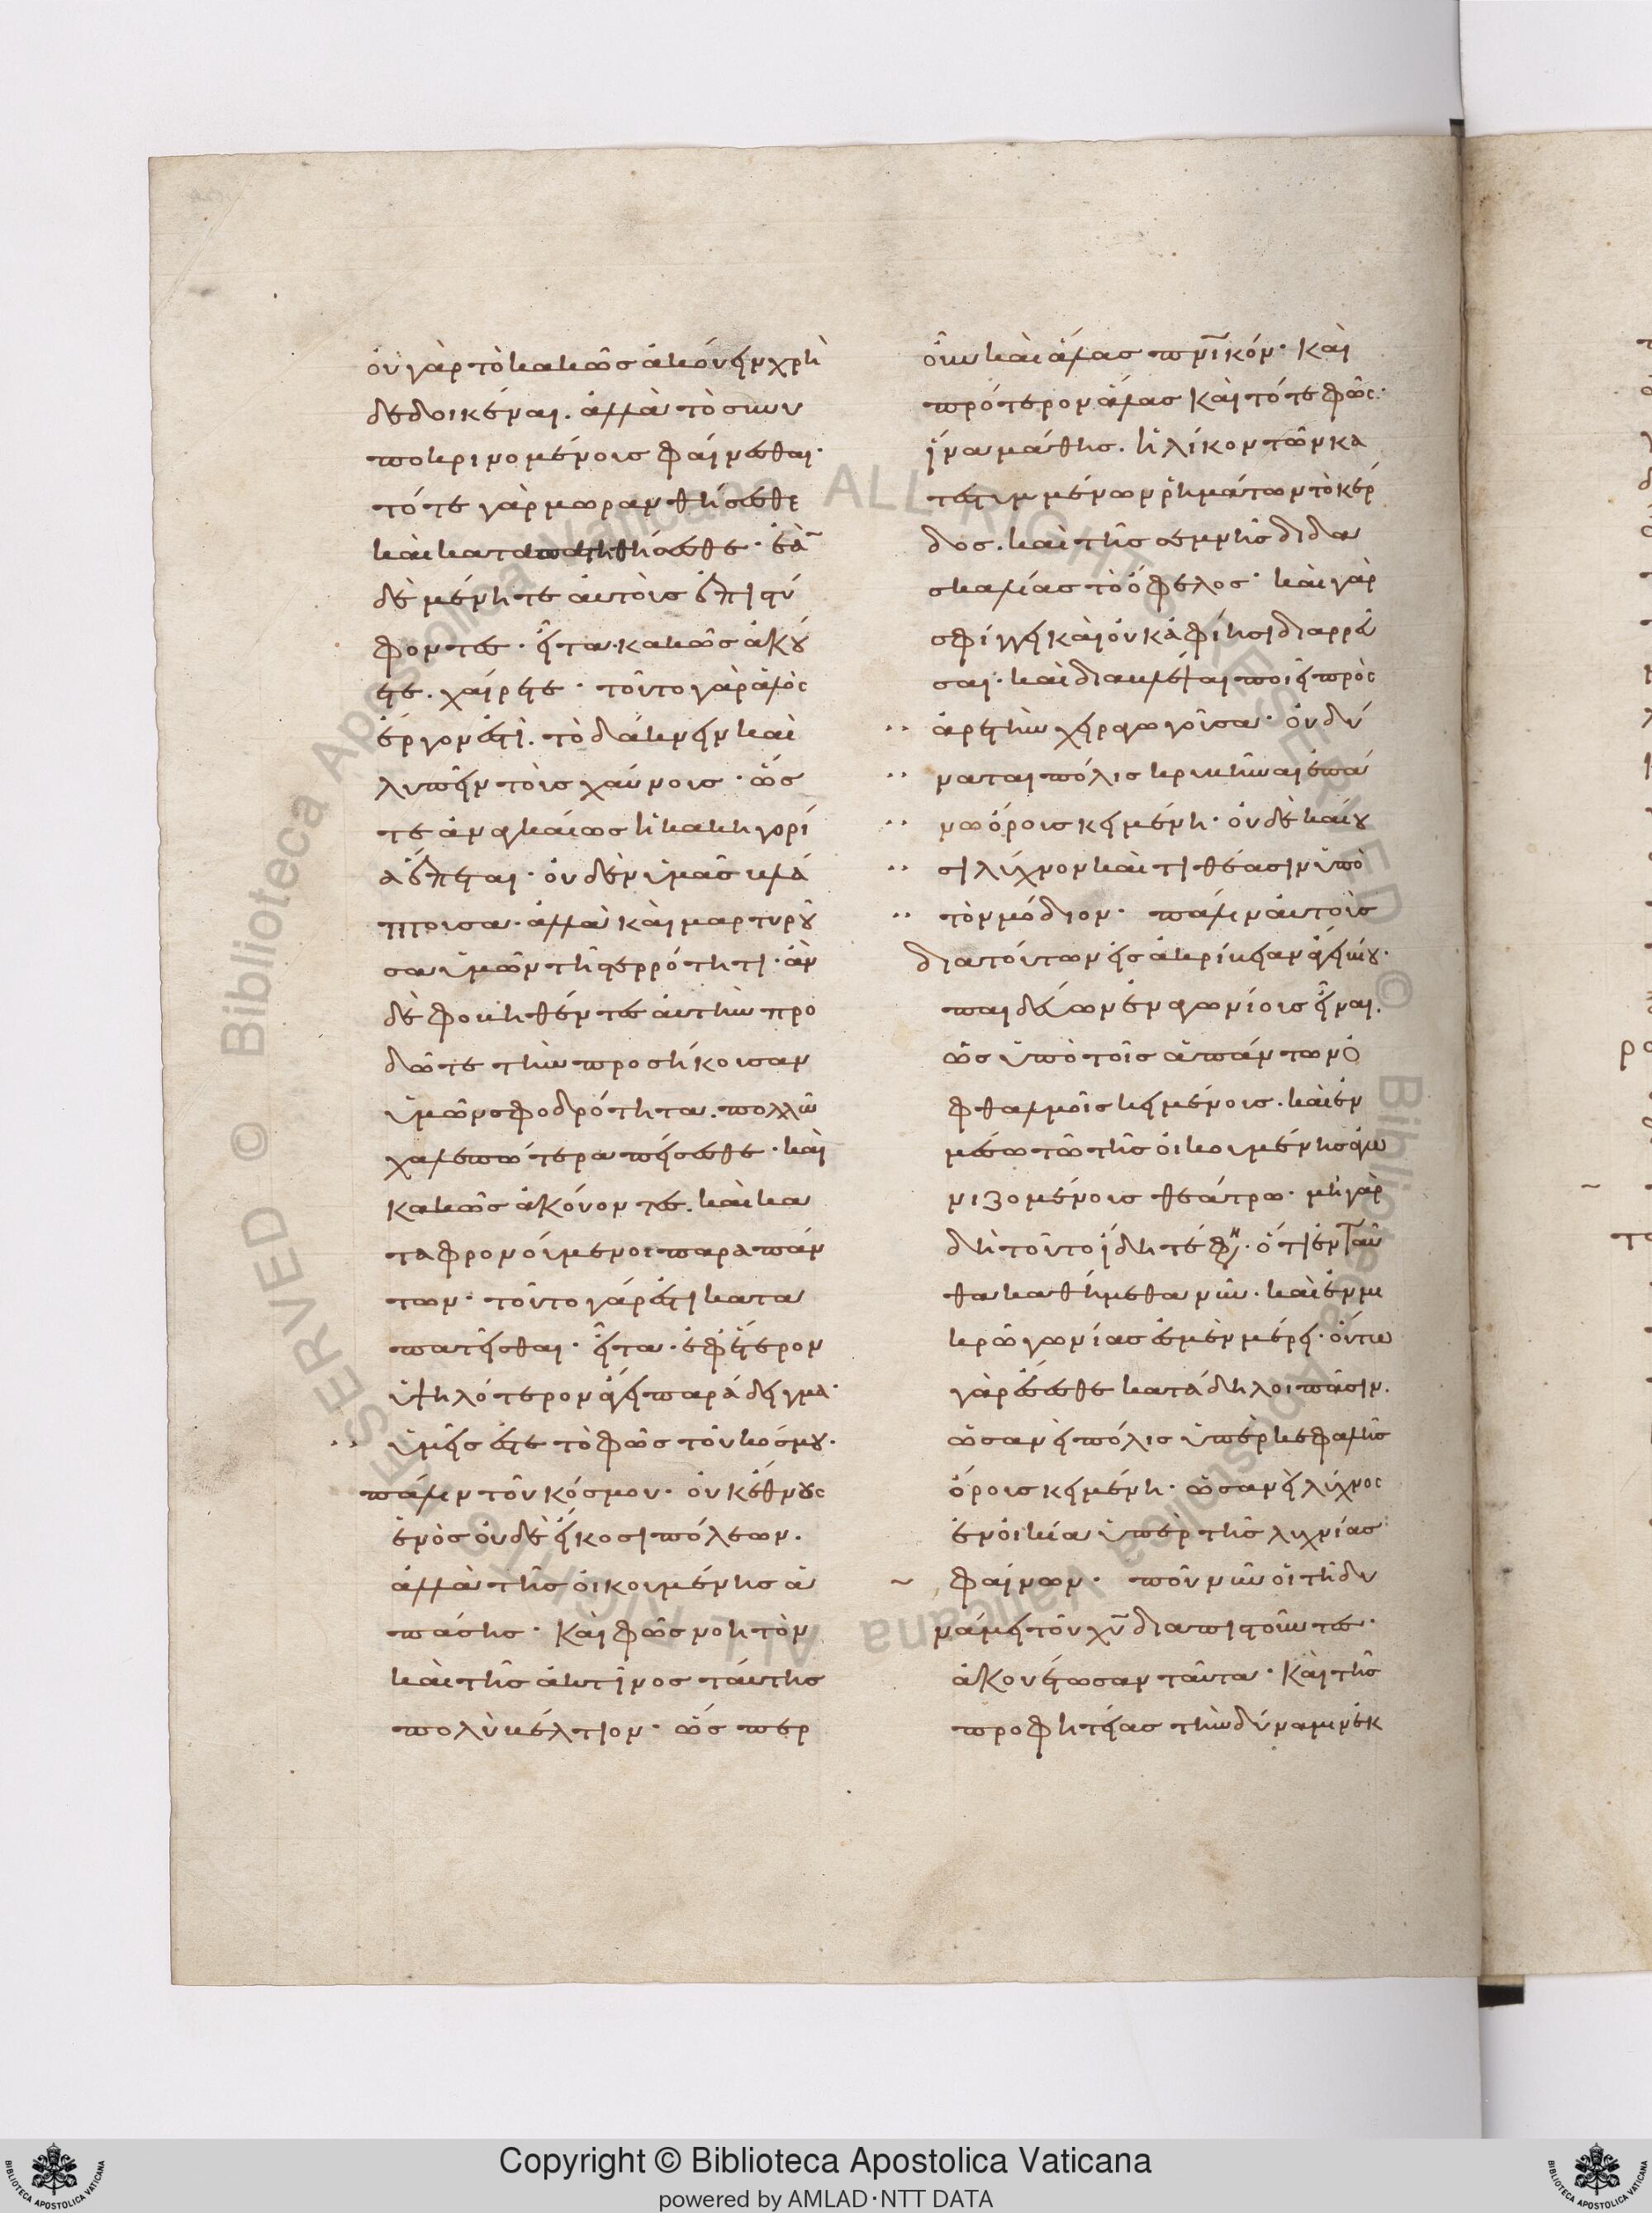 οὐ γὰρ τὸ κακῶς ἀκούειν χρὴ
δεδοικέναι. ἀλλὰ τὸ συνυ
ποκρινομένους φαίνεσθαι·
τότε γὰρ μωρανθήσεσθε
καὶ καταπατηθήσεσθε· ἐὰ̅
δὲ μένητε αὐτοὺς ἐπιστύ
φοντες· εἶτα κακῶς ἀκού
ετε. χαίρετε· τοῦτο γὰρ ἁλὸς
ἔργον ἐστὶ. τὸ δάκνειν καὶ
λυπεῖν τοὺς χαύνους· ὥς
τε ἀναγκαίως ἡ κακηγορί
α ἕπεται· οὐδὲν ὑμᾶς βλά
πτουσα· ἀλλὰ καὶ μαρτυροῦ
σα ὑμῶν τῆ στερρότητι· ἂν
δὲ φοβηθέντες αὐτὴν προ
δῶτε τὴν προσήκουσαν
ὑμῶν σφοδρότητα. πολλῶ
χαλεπώτερα πείσεσθε· καὶ
κακῶς ἀκούοντες. καὶ κα
ταφρονούμενοι παρὰ πάν
των· τοῦτο γάρ ἐστι κατα
πατεῖσθαι· εἶτα ἐφ' ἕτερον
ὑψηλότερον ἄγει παράδειγμα·
ὑμεῖς ἐστε τὸ φῶς τοῦ κόσμου·
πάλιν τοῦ κόσμου· οὐκ ἔθνους
ἑνὸς οὐδὲ εἴκοσι πόλεων.
ἀλλὰ τῆς οἰκουμένης ἁ
πάσης· καὶ φῶς νοητὸν
καὶ τῆς ἀκτῖνος ταύτης
πολὺ βέλτιον· ὥσπερ
οὖν καὶ ἅλας πν̅ικόν· καὶ
πρότερον ἅλας καὶ τότε φῶς·
ἵνα μάθης. ἡλίκον τῶν κα
τεστιμμένων ῥημάτων τὸ κέρ
δος. καὶ τῆς σεμνῆς διδα
σκαλίας τὸ ὄφελος· καὶ γὰρ
σφίγγει καὶ οὐκ ἀφίησι διαρρεῦ
σαι· καὶ διαβλέψαι ποιεῖ πρὸς
ἀρετὴν χειραγωγοῦσα· οὐ δύ
ναται πόλις κρυβῆναι ἐπά
νω ὄρους κειμένη· οὐδὲ καίου
σι λύχνον καὶ τιθέασιν ὑπὸ
τὸν μόδιον· πάλιν αὐτοὺς
διὰ τούτων εἰς ἀκρίβειαν ἄγει βίου·
παιδεύων ἐναγωνίους εἶναι.
ὡς ὑπὸ τοῖς ἁπάντων ὀ
φθαλμοῖς κειμένους. καὶ ἐν
μέσω τῶ τῆς οἰκουμένης ἀγω
νιζομένους θεάτρω· μὴ γὰρ
δὴ τοῦτο ἴδητέ φη· ὅτι ἐνταῦ
θα καθήμεθα νῦν· καὶ ἐν μι
κρῶ γωνίας ἐσμὲν μέρει· οὕτω
γὰρ ἔσεσθε κατάδηλοι πᾶσιν.
ὡς ἂν εἰ πόλις ὑπὲρ κεφαλῆς
ὄρους κειμένη· ὡς ἂν εἰ λύχνος
ἐν οἰκία ὑπὲρ τῆς λυχνίας
φαίνων· ποῦ νῦν οἱ τῆ δυ
νάμει τοῦ χυ̅ διαπιστοῦντες·
ἀκουέτωσαν ταῦτα· καὶ τῆς
προφητείας τὴν δύναμιν ἐκ
Copyright © Biblioteca Apostolica Vaticana
powered by AMLAD·NTT DATA